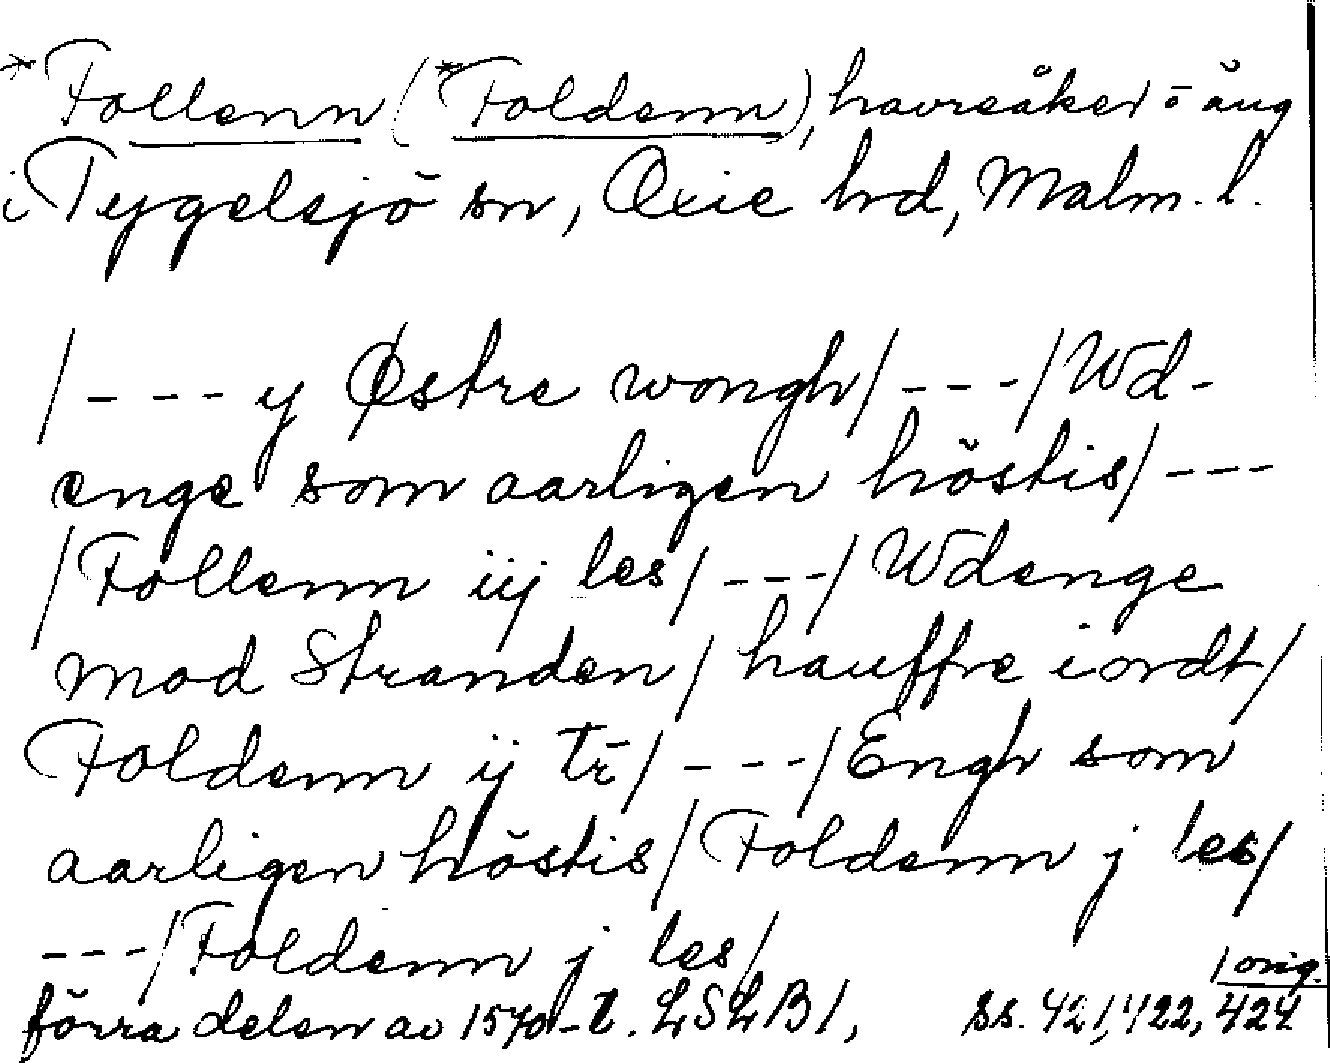 * Follenn (*Foldenn), havreåker o äng
i Tygelsjö sn, Oxie hd, Malm. l.
/ - - - y Østre wongh / - - - / Wd-
enge som aarligen höstis / - - -
/ Follenn iij les / - - - / Wdenge
mod Stranden / hauffre iordt /
Foldenn ij tr̄ / - - - / Engh som
aarligen höstis / Foldenn j les /
- - - / Foldenn j les /
/ orig.
förra delen av 1570-t. LSLB 1, ss. 421, 422, 424